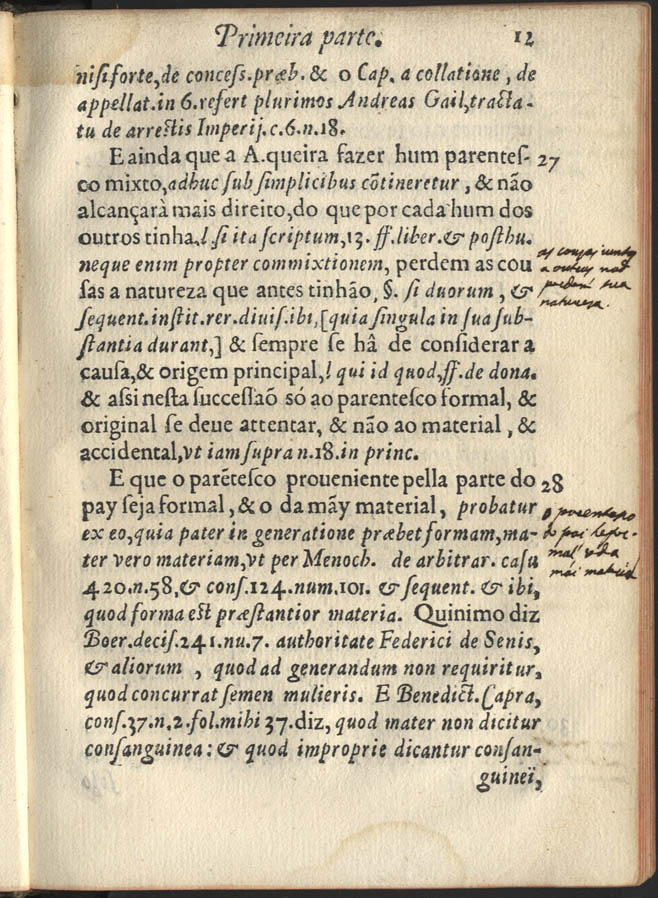 Primeira parte. 12
nisi forte, de concess. præb. & o Cap. a collatione, de
appellat. in 6. refert plurimos Andreas Gail, tracta-
tu de arrestis Imperij. c. 6. n. 18.
E ainda que a A. queira fazer hum parentes- 27
co mixto, adhuc sub simplicibus cõtineretur, & não
alcançarà mais direito, do que por cada hum dos
outros tinha, l. si ita scriptum, 13. ff. liber. & posthu.
neque enim propter commixtionem, perdem as cou
sas a natureza que antes tinhão, §. si duorum, &
sequent. instit. rer. divis. ibi, [quia singula in sua sub-
stantia durant,] & sempre se hâ de considerar a
causa, & origem principal, l qui id quod, ff. de dona.
& assi nesta successaõ só ao parentesco formal, &
original se deue attentar, & não ao material, &
accidental, vt iam supra n. 18. in princ.
as cousas juntas
a outras não
perdem sua
natureza.
E que o parẽtesco proueniente pella parte do 28
pay seja formal, & o da mãy material, probatur
ex eo, quia pater in generatione præbet formam, ma-
ter vero materiam, vt per Menoch. de arbitrar. casu
420. n. 58, & cons. 124. num. 101. & sequent. & ibi,
quod forma est præstantior materia. Quinimo diz
Boer. decis. 241. nu. 7. authoritate Federici de Senis,
& aliorum, quod ad generandum non requiritur,
quod concurrat semen mulieris. E Benedict. Capra,
cons. 37. n. 2. fol. mihi 37. diz, quod mater non dicitur
consanguinea: & quod improprie dicantur consan-
guinei,
o parentesco
do pai he for-
mal o da
mái material